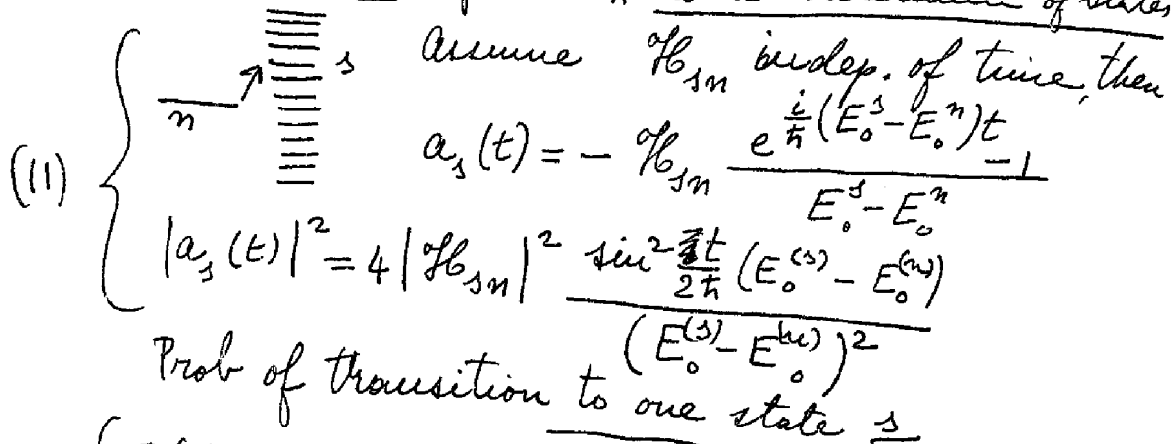 of states
Assume ℋ_sn indep. of time, then
n s
(11) a_s(t) = - ℋ_sn (e^{i/ħ (E_0^s - E_0^n)t} - 1) / (E_0^s - E_0^n)
|a_s(t)|² = 4|ℋ_sn|² sin² t/2ħ (E_0^(s) - E_0^(n)) / (E_0^(s) - E_0^(n))²
Prob of transition to one state s